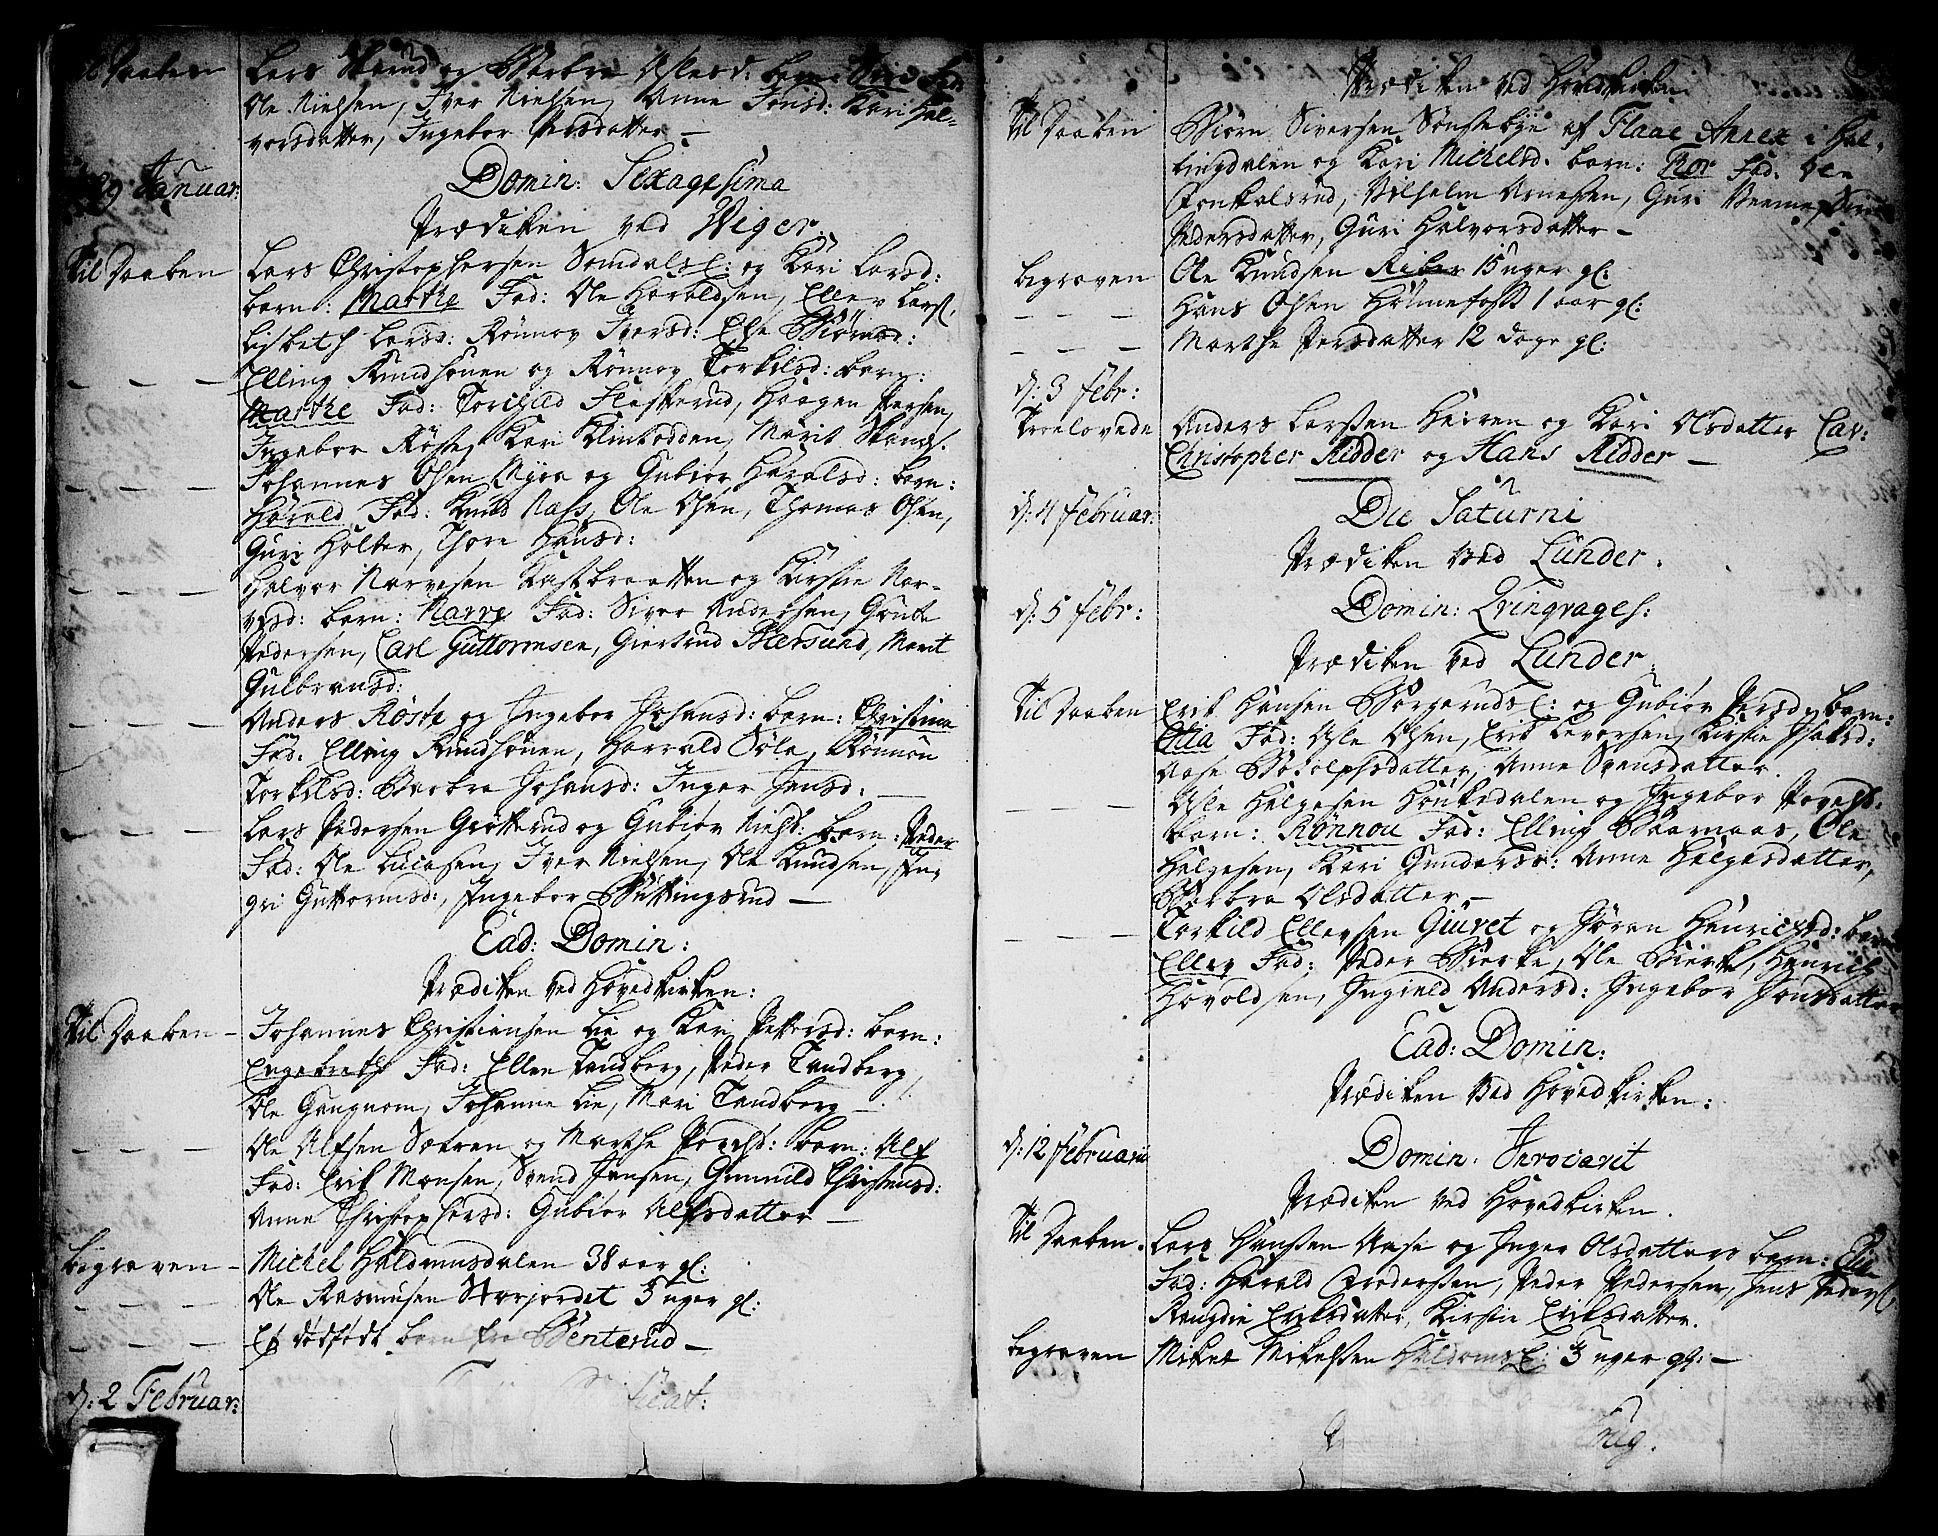 Til Daaben Lars Skarud og Barbra Aslesd: barn: Siri Fad:
Ole Nielsen, Iver Nielsen, Anne Jonsd: Kari Hal-
vorsdatter, Ingebor Persdatter —
29 Januar: Domin: Sexagesima
Prædiken ved Wiger.
Til Daaben Lars Christophersen SomdalsE: og Kari Larsd:
barn: Marthe Fad: Ole Haroldsen, Ellev Larss.
Lisbeth Larsd: Rönnov Iversd: Ele Biörnsd:
— — — Elling Knudsönen og Rönnov Torkilsd: barn:
Marthe Fad: Torchild Fleskerud, Haagen Persen,
Ingebor Röste, Kari Klinkodden, Marit
— — — Johannes Olsen Myra og Gubiör Haralsd: barn:
Harald, Fad: Knud Næss, Ole Olsen, Thomas Olsen,
Guri Holter, Thore Hansd:
— — — Halvor Narvesen Kastbraatten og Kirstie Nar-
vesd: barn: Narve Fad: Siver Andersen, Grube
Pedersen, Carl Guttormsen, Giertrud Skersund, Marit
Gulbransd:
— — — Anders Röste og Ingebor Johansd: barn: Christina
Fad: Elling Knudsönen, Harrald Söla, Rönnov
Torkilsd: Barbra Johansd: Inger Jensd: —
— — — Lars Pedersen Gröttrud og Gubiör Nielsd: barn: Peder
Fad: Ole Lucasen, Iver Nielsen, Ole Knudsen, In-
gri Guttormsd:, Ingebor Buttingsrud —
Ead: Domin:
Prædiken ved Hovedkirken:
Til Daaben — Johannes Christiansen Lie og Kari Pettersd: barn:
Engebreth Fad: Ellen Tandberg, Peder Tandberg,
Ole Gangnom, Johanne Lie, Mari Tandberg —
— — — Ole Alfsen Sætran og Marthe Povelsd: barn: Alf
Fad: Erik Monsen, Svend Jansen, Gunnild Christensd:
Anne Christophersd: Gubiör Alfsdatter —
begraven — Michel Haldumsdalen 38 aar gl:
— — — Ole Rasmusen Storjordet 3 uger gl:
— — — Et dödfödt barn fra Benterud —
d: 2 Februar:
Prædiken ved Hovedkirken:
Til Daaben Biörn Siversen Sönstebye af Flaae Annex i Hal-
lingdalen og Kari Michelsd. barn: Roe Fad: Ole
Tronkalsrud, Vilhelm Arnesen, Guri
Pedersdatter, Guri Halvorsdatter —
begraven Ole Knudsen Riber 15 uger gl:
— — — Hans Olsen Hönnefoss 1 aar gl:
— — — Marthe Persdatter 12 dage gl:
d: 3 Febr:
Troelovede Anders Larsen Heiren og Kari Olsdatter Cav:
Christopher Ridder og Hans Ridder —
d: 4 Februar: Die Saturni
Prædiken ved Lunder.
d: 5 Febr: Domin: Qvinqvages:
Prædiken ved Lunder.
Til Daaben Erik Hansen BörgerudsE: og Gubiör Persd: barn:
Elia Fad: Asle Olsen, Erik Levorsen, Kirstie Isaksd:
Aase Bodolphsdatter, Anne Svensdatter.
— — — Asle Helgesen Haukedalen og Ingebor Povelsd:
barn: Rönnou Fad: Elling Skaarnaas, Ole
Helgesen, Kari Gundersd: Anne Helgesdatter,
Barbra Olsdatter —
— — — Torkild Ellevsen Giuvet og Jöran Henrichsd: barn:
Ellev Fad: Peder Bierke, Ole Bierke, Henrich
Hovoldsen, Ingield Andersd: Ingebor Jonsdatter
Ead: Domin:
Prædiken ved Hovedkirken:
d: 12 Februarii Domin. Invocavit
Prædiken ved Hovedkirken.
Til Daaben. Lars Hansen Aase og Inger Olsdatters barn: Elie
Fad: Harald Pedersen, Jens Peders.
Rangdie Eriksdatter, Kirstie Eriksdatter.
begraven Mikel Mikelsen HaldomsE: 3 uger gl: —